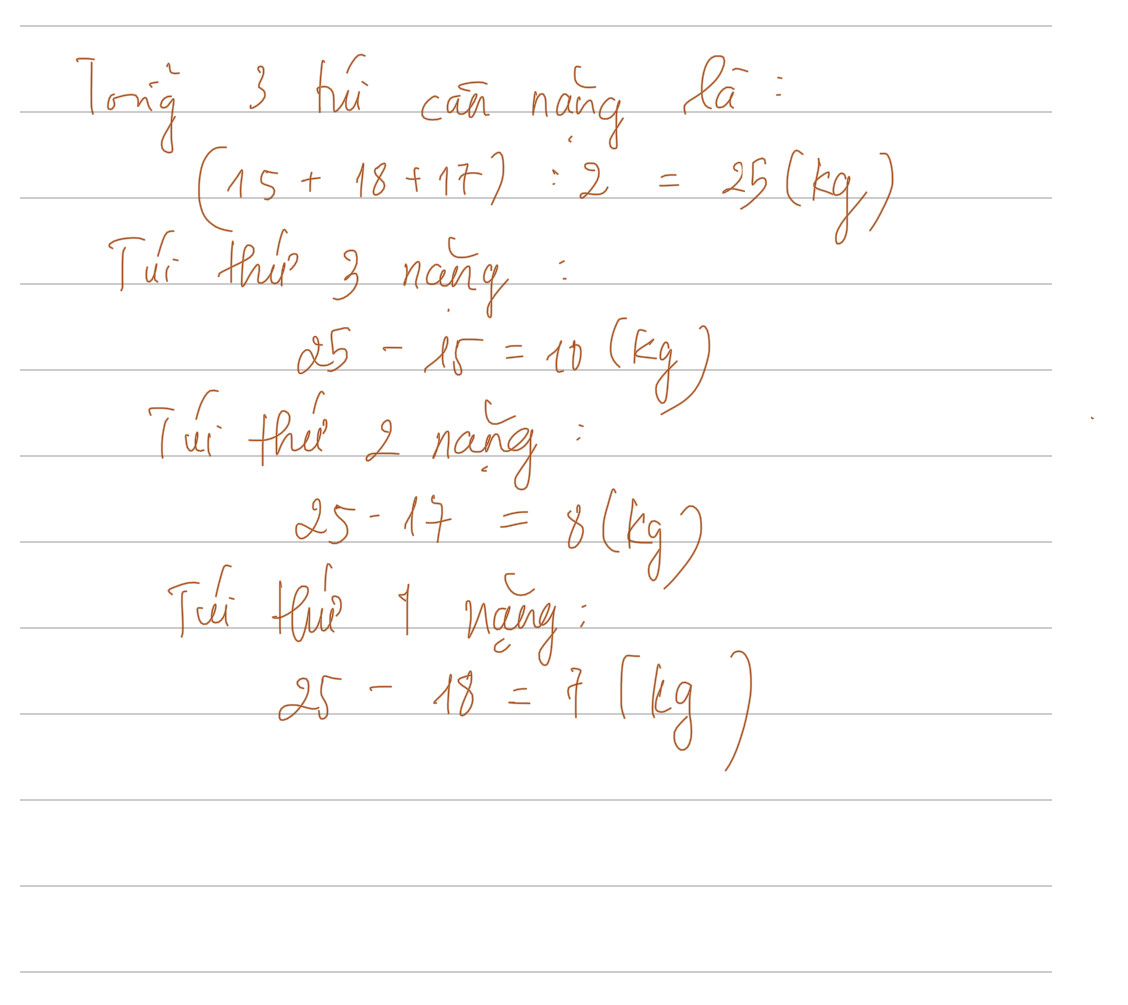 Tổng 3 túi cân nặng là :
(15 + 18 + 17) : 2 = 25 (kg)
Túi thứ 3 nặng :
25 - 15 = 10 (kg)
Túi thứ 2 nặng :
25 - 17 = 8 (kg)
Túi thứ 1 nặng :
25 - 18 = 7 (kg)